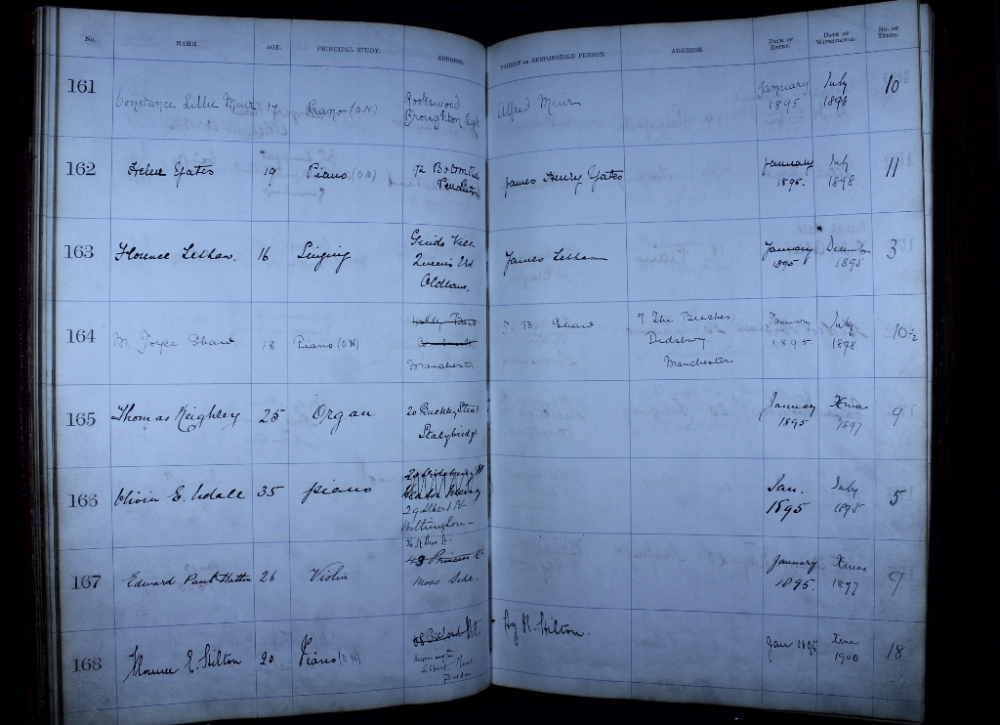 No. NAME. AGE. PRINCIPAL STUDY. ADDRESS. PARENT OR RESPONSIBLE PERSON. ADDRESS. DATE OF ENTRY. DATE OF WITHDRAWAL. No. OF TERMS.
161 Constance Lillie Meur 17 Piano (O.N) Rookswood Alfred Meur January July 10
Broughton 1895 1898
162 Helen Yates 19 Piano (O N) 72 James Henry Yates January July 11
Pendleton 1895. 1898
163 Florence Letham. 16 Singing Guide James Letham January December 3
Queen's Rd 1895 1895
Oldham.
164 M. Joyce Shaw 18 Piano (O N) Holly Bank J. B. Shaw 7 The Beeches January July 10½
Didsbury 1895 1898
Manchester Manchester
165 Thomas Keighley 25 Organ 20 Buckley Street January Xmas 9
Stalybridge 1895 1897
166 Olivia E. Udall 35 piano Jan. July 5
29 Albert Rd 1895
Withington
167 Edward Paul Hatton 26 Violin 43 Princess January Xmas 9
Moss Side. 1895. 1897
168 Florence E. Hilton 20 Piano (O N) Hy N. Hilton. Jan 1895 Xmas 18
1900